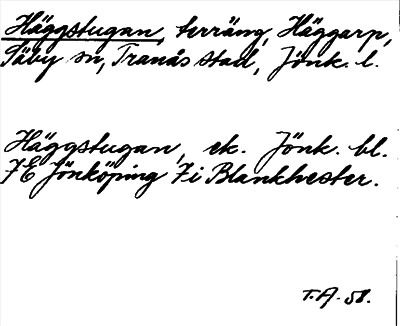 Häggstugan, terräng, Häggarp,
Säby sn, Tranås stad, Jönk. l.
Häggstugan, ek. Jönk. bl.
7E Jönköping 7i Blankhester.
T.A. 58.